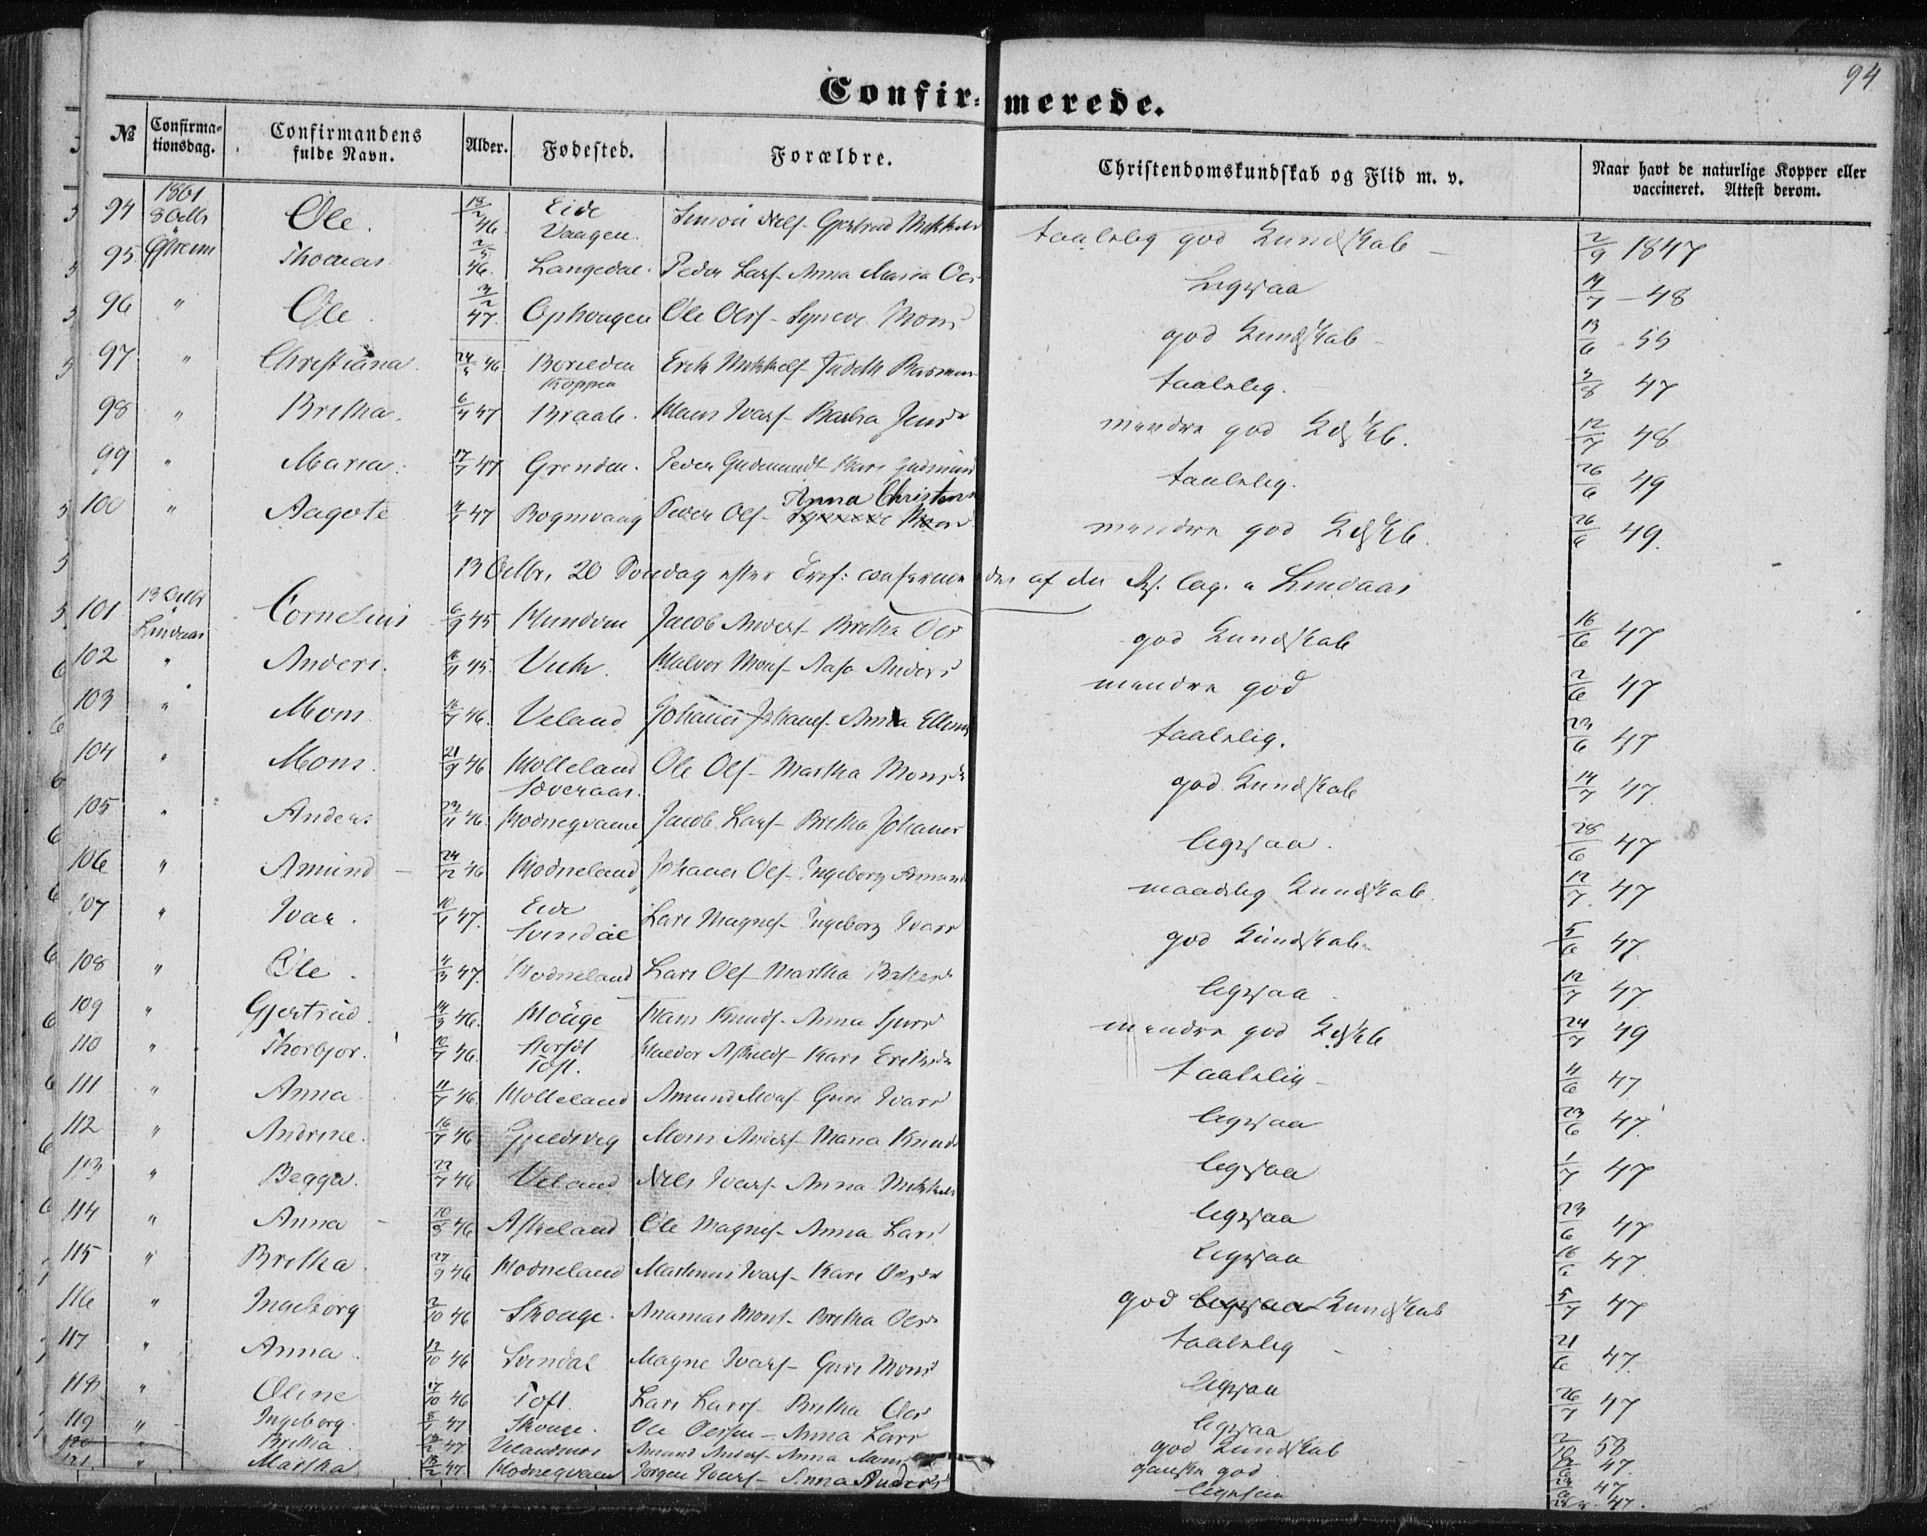 94
Confirmerede.
№ Confirmationsdag. Confirmandens fulde Navn. Alder. Fødested. Forældre. Christendomskundskab og Flid m. v. Naar havt de naturlige Kopper eller vaccineret. Attest derom.
1861
94 8 Octbr Ole. 18/2 46. Eide Vaagen. Simon Nels- Gjertrud Mikkels taalelig god Kundskab 2/9 1847
95. Thomas 2/5 46. Langedal. Peder Lars- Anna Maria Ols ligesaa 14/7 - 48
96 " Ole. 3/2 47. Ophougen Ole Ols- Syneve Mons god Kundskab 13/6 55
97 " Christiana. 24/5 46 Erik Mikkels- Judith Rasmus taalelig. 3/8 47
98 " Brita. 6/4 47 Braate. Klaus Ivars- Barbra Jens mindre god Kdskb. 12/7 48
99 " Maria. 17/7 47 Grenden. Peder Gudmunds- Kari Gudmund taalelig. 26/6 49
100 " Aagote 47 Rognvaag Peder Ols- Anna Christens mindre god Kdskb. 26/6 49.
13 Octbr. 20 Søndag efter Tref: confirmeredes af den i Lindaas
101 13 Octbr Lindaas Cornelius 6/9 45 Mundvie Jacob Anders- Bretha Ols god Kundskab 16/6 47
102 " Anders. 45. Vuk. Halvor Mons- Aasa Anders mindre god 2/6 47
103 " Mons 46. Veland Johannes Johannes- Anna Ellings taalelig. 23/6 47
104 " Mons. 21/9 46 Molleland Ole Ols- Martha Mons god Kundskab 14/7 47.
Søveraas.
105 " Anders 23/11 46. Hodneqvame Jacob Lars- Bretha Johannes ligesaa. 28/6 47
106 " Amund 24/12 46 Hodneland Johannes Ols- Ingeborg Amund maadelig Kundskab. 12/7. 47
107 " Ivar. 10/1 47. Eide Svindal Lars Magnes- Ingeborg Ivars god Kundskab 5/6 47.
108 " Ole. 4/3 47. Hodneland Lars Ols- Martha ligesaa 12/7 47
109 " Gjertrud. 14/3 46. Houge Hans Knuds- Anna Sjurs mindre god Kdskb 24/7 49
110 " Thorbjor. 10/7 46. Toft. Haldor Askilds- Kari Eriks taalelig 11/6 47
111 " Anna. 11/7 46. Molleland Amund Mons- Guri Ivars ligesaa 23/6 47.
112 " Andrine. 16/7 46 Gjeldsvig Mons Anders- Maria Knuds ligesaa 1/7 47
113 " Begga. 22/7 46 Veland Nels Ivars- Anna Mikkels ligesaa 23/6 47
114 " Anna 10/8 46 Askeland Ole Magnes- Anna Lars ligesaa 16/6 47.
115 " Bretha. 27/9 46 Hodneland Martinus Ivars- Kari Ols god ligesaa Kundskab 5/7 47
116 " Ingeborg 2/10 46 Skouge. Ananias Mons- Bretha Ols taalelig 21/6 47.
117 " Anna. 12/10 46 Svindal Magne Ivars- Guri Mons ligesaa 26/7 47
118 " Oline 17/10 46 Toft. Lars Lars- Bretha Ols ligesaa
119 " Ingeborg. 8/1 47 Skouge. Ole Olsen- Anna Lars god Kundskab 58
120 " Bretha. 47 Amund Anders- Anna Mons ganske god 47.
121. " Martha 47. Hodneqvame Jørgen Ivars- Anna Anders ligesaa 47.